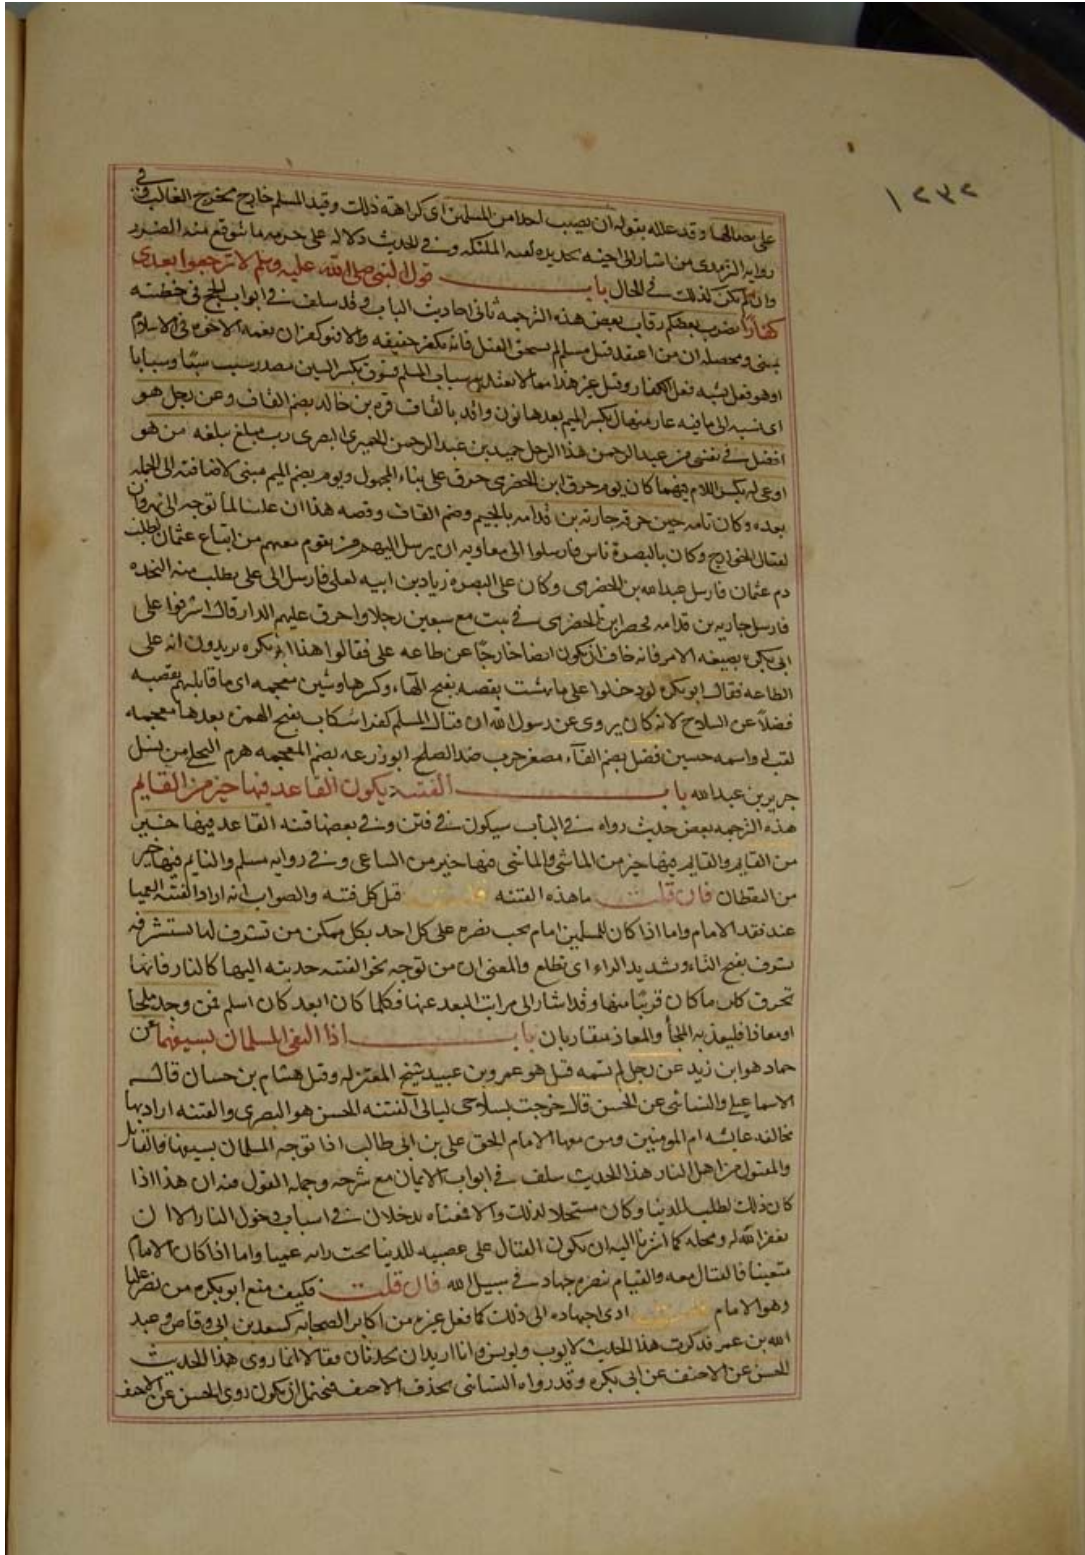 ١٢٣٢
على نصالها وقد علله بقوله ان يصيب احدا من المسلمين اى كراهة ذلك وقيد المسلم خارج مخرج الغالب وفي
رواية الترمذى من اشار الى اخيه بحديدة لعنه الملئكه وفي الحديث دلاله على حرمه ما يتوقع منه الضرر
وان لم يكن كذلك في الحال باب قول النبي صلى الله عليه وسلم لا ترجعوا بعدى
كفارا يضرب بعضكم رقاب بعض هذه الترجمه ثانى احاديث الباب وقد سلف في ابواب الحج فى خطبته
بمنى ومحصله ان من اعتقد قتل مسلم لم يستحق القتل فانه يكفر حقيقه والا فهو كفران نعمه الاخوه فى الاسلام
او هو فعل يشبه فعل الكفار وقيل غير هذا مما لا يعتد به سباب المسلم فسوق بكسر السين مصدر سبب سبا وسبابا
اى نسبه الى ما فيه عار منهال بكسر الميم بعدها نون واقد بالقاف قره بن خالد بضم القاف وعن رجل هو
افضل في نفسى من عبد الرحمن هذا الرجل حميد بن عبد الرحمن الحميرى البصرى رب مبلغ يبلغه من هو
اوعى له بكسر اللام فيهما كان يوم حرق ابن الحضرى حرق على بناء المجهول ويوم بضم الميم مبنى لاضافته الى الجمله
بعده وكان تامه حين حرقه جاريه بن قدامه بالجيم وضم القاف وقصه هذا ان عليا لما توجه الى نهروان
لقتال الخوارج وكان بالبصرة ناس فارسلوا الى معاويه ان يرسل اليهم من يقوم معهم من اتباع عثمان لطلب
دم عثمان فارسل عبد الله بن الحضرى وكان على البصره زياد بن ابيه لعلى فارسل الى على يطلب منه النجده
فارسل جاريه بن قدامه فحصر ابن الحضرى في بيت مع سبعين رجلا واحرق عليهم الدار قال اشرفوا على
ابى بكره بصيغه الامر فانه خاف ان يكون ايضا خارجا عن طاعه على فقالوا هذا ابو بكره يريدون انه على
الطاعه فقال ابو بكره لو دخلوا على ما بهشت بقصه بفتح الهاء وكسرها وشين معجمه اى ما قابلتهم بقصبه
فضلا عن السلاح لانه كان يروى عن رسول الله ان قتال المسلم كفر اشكاب بفتح الهمزه بعدها معجمه
لقب لى واسمه حسين فضل بضم الفاء مصغر حرب ضد الصلح ابو زرعه بضم المعجمه هرم البجلى من نسل
جرير بن عبد الله باب الفتنة يكون القاعد فيها خير من القايم
هذه الترجمه بعض حديث رواه في الباب سيكون في فتن وفي بعضها فتنه القاعد فيها خير
من القايم والقايم فيها خير من الماشى والماشى فيها خير من الساعى وفي روايه مسلم والنايم فيها خير
من اليقظان فان قلت ما هذه الفتنه قلت قيل كل فتنه والصواب انه اراد الفتنه العميا
عند فقد الامام واما اذا كان للمسلمين امام يجب نصره على كل احد بكل ممكن من تشرف لها تستشرفه
تشرف بفتح التاء وتشديد الراء اى تطلع والمعنى ان من توجه نحو الفتنه جذبته اليها كالنار فانها
تحرق كل ما كان قريبا منها وقد اشار الى مراتب البعد عنها فكلما كان ابعد كان اسلم فمن وجد ملجا
او معاذا فليعذ به الملجأ والمعاذ متقاربان باب اذا التقى المسلمان بسيفهما عن
حماد هو ابن زيد عن رجل لم يسمه قيل هو عمرو بن عبيد شيخ المعتزله وقيل هشام بن حسان قاله
الاسماعيلى والنسائى عن الحسن قال خرجت بسلاحى ليالى الفتنه الحسن هو البصرى والفتنه اراد بها
مخالفه عائشه ام المومنين ومن معها الامام الحق على بن ابى طالب اذا توجه المسلمان بسيفهما فالقاتل
والمقتول من اهل النار هذا الحديث سلف في ابواب الايمان مع شرحه وجمله القول فيه ان هذا اذا
كان ذلك لطلب الدنيا وكان مستحلا لذلك والا فمعناه يدخلان في اسباب دخول النار الا ان
يغفر الله له ومحله كما اشرنا اليه ان يكون القتال على عصبيه للدنيا تحت رايه عميا واما اذا كان الامام
متعينا فالقتال معه والقيام بنصره جهاد في سبيل الله فان قلت فكيف منع ابو بكره من نصر عليا
وهو الامام قلت ادى اجتهاده الى ذلك كما فعل غيره من اكابر الصحابه كسعد بن ابى وقاص وعبد
الله بن عمر فذكرت هذا الحديث لايوب ويونس وانا اريد ان يحدثان فقالا انما روى هذا الحديث
الحسن عن الاحنف عن ابى بكره وقد رواه النسائى بحذف الاحنف فيحتمل ان يكون روى الحسن عن الاحنف